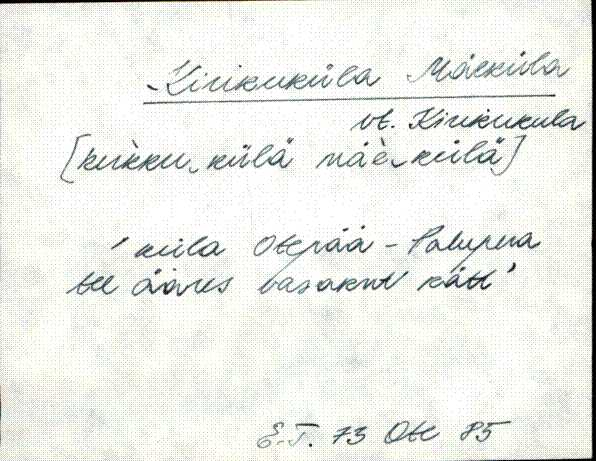 Kirikuküla Mäeküla
vt. Kirikuküla
[kirikku küllä mäe külä]
' küla Otepää - Palupera
tee ääres vasakut kätt'
E.T. 73 Ote 85